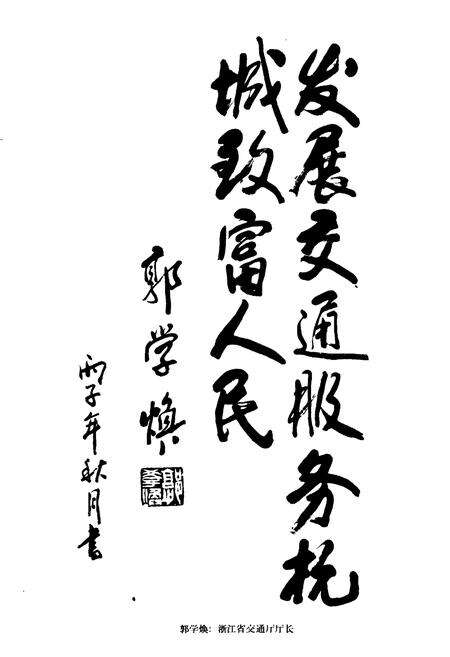 发展交通服务杭
城致富人民
郭学焕
丙子年秋月书
郭学焕：浙江省交通厅厅长